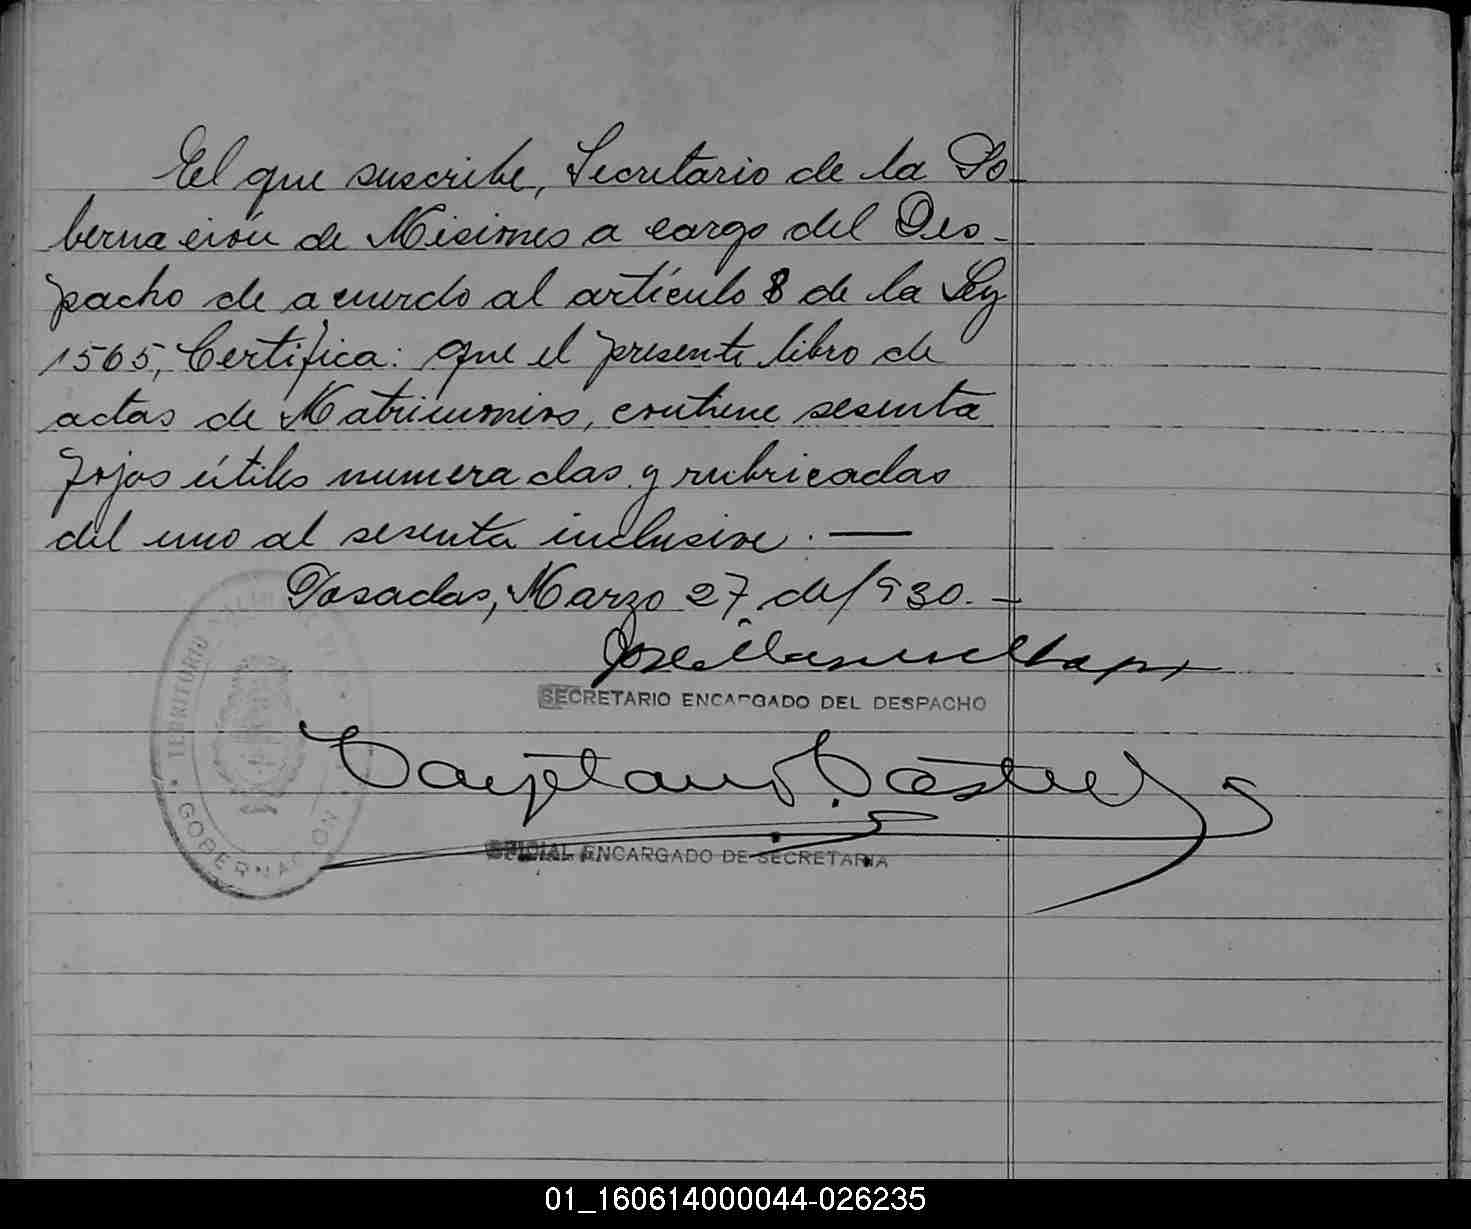 El que suscribe, Secretario de la Go-
bernación de Misiones a cargo del Des-
pacho de acuerdo al artículo 8 de la Ley
1565, Certifica: que el presente libro de
actas de Matrimonios, contiene sesenta
fojas útiles numeradas y rubricadas
del uno al sesenta inclusive. —
Posadas, Marzo 27 de 1930. —
José
SECRETARIO ENCARGADO DEL DESPACHO
Cayetano Castue
OFICIAL ENCARGADO DE SECRETARIA
TERRITORIO
GOBERNACION
01_160614000044-026235